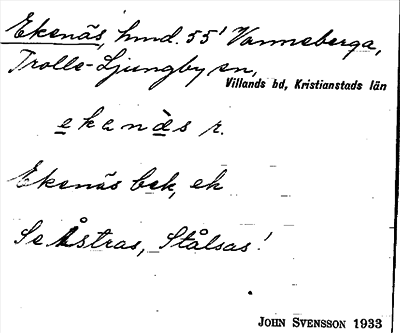 Ekenäs, hmd. 55' Vanneberga,
Trolle-Ljungby sn,
Villands hd, Kristianstads län
ekanàs r.
Ekenäs bek, ek
Se Åstras, Stålsas!
JOHN SVENSSON 1933